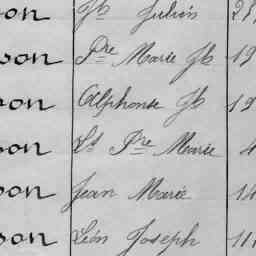 son Jh Julien 23
son Pre Marie Jh 19
son Alphonse Jh 19
son Ls Pre Marie 4
son Jean Marie 14
son Léon Joseph 11